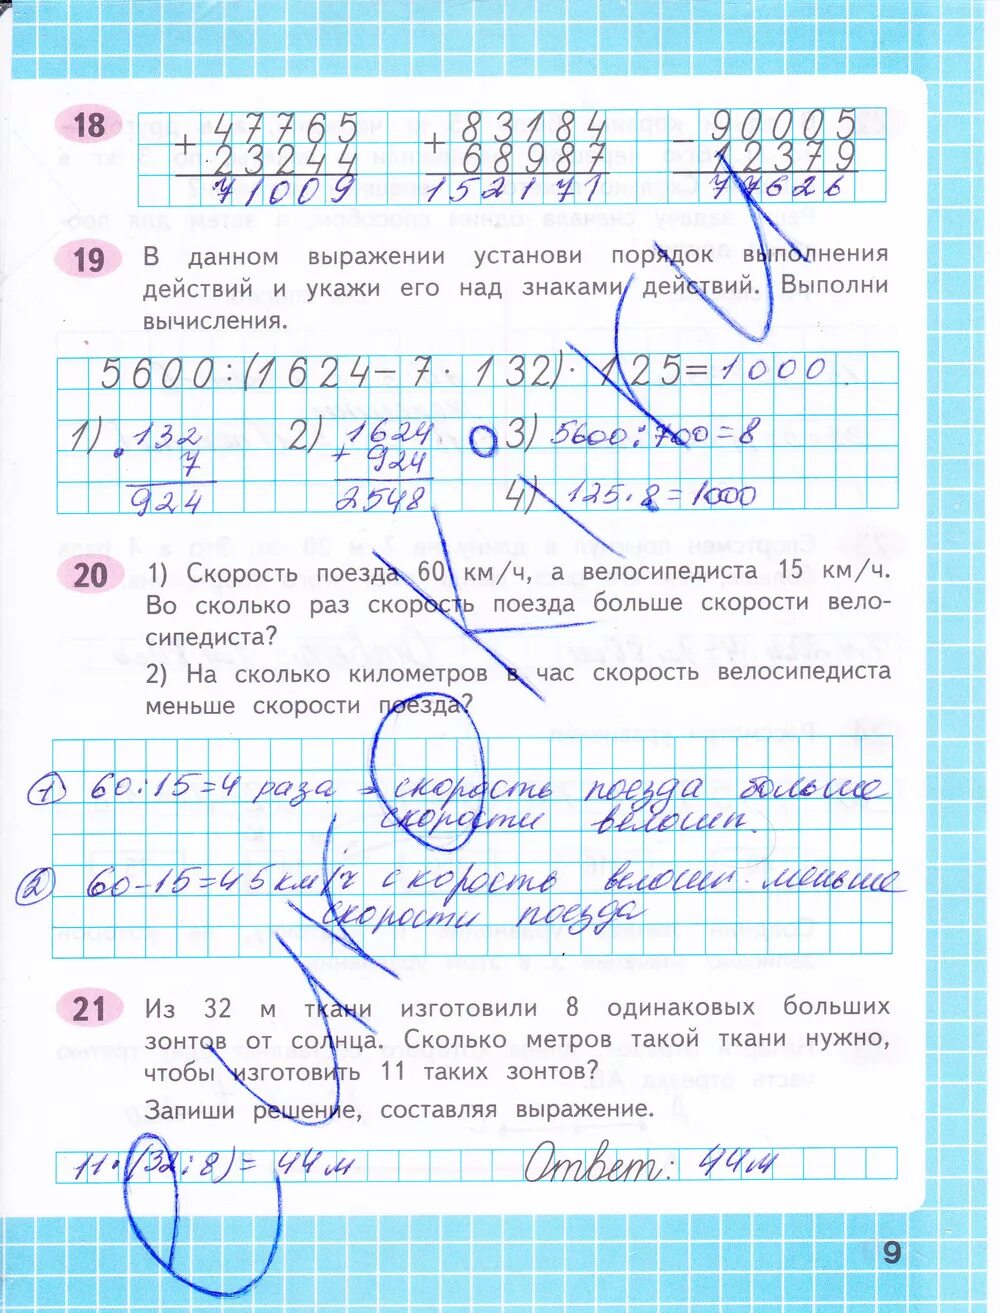 18
47765 83184 90005
+ + -
23244 68987 12379
71009 152171 77626
19 В данном выражении установи порядок выполнения
действий и укажи его над знаками действий. Выполни
вычисления.
5600:(1624-7·132)·125=1000
1) 132 2) 1624 3) 5600:700=8
· 7 + 924
924 2548 4) 125·8=1000
20 1) Скорость поезда 60 км/ч, а велосипедиста 15 км/ч.
Во сколько раз скорость поезда больше скорости вело-
сипедиста?
2) На сколько километров в час скорость велосипедиста
меньше скорости поезда?
1) 60:15=4 раза - скорость поезда больше
скорости велосип.
2) 60-15=45 км/ч скорость велосип. меньше
скорости поезда
21 Из 32 м ткани изготовили 8 одинаковых больших
зонтов от солнца. Сколько метров такой ткани нужно,
чтобы изготовить 11 таких зонтов?
Запиши решение, составляя выражение.
11·(32:8)=44м Ответ: 44м
9